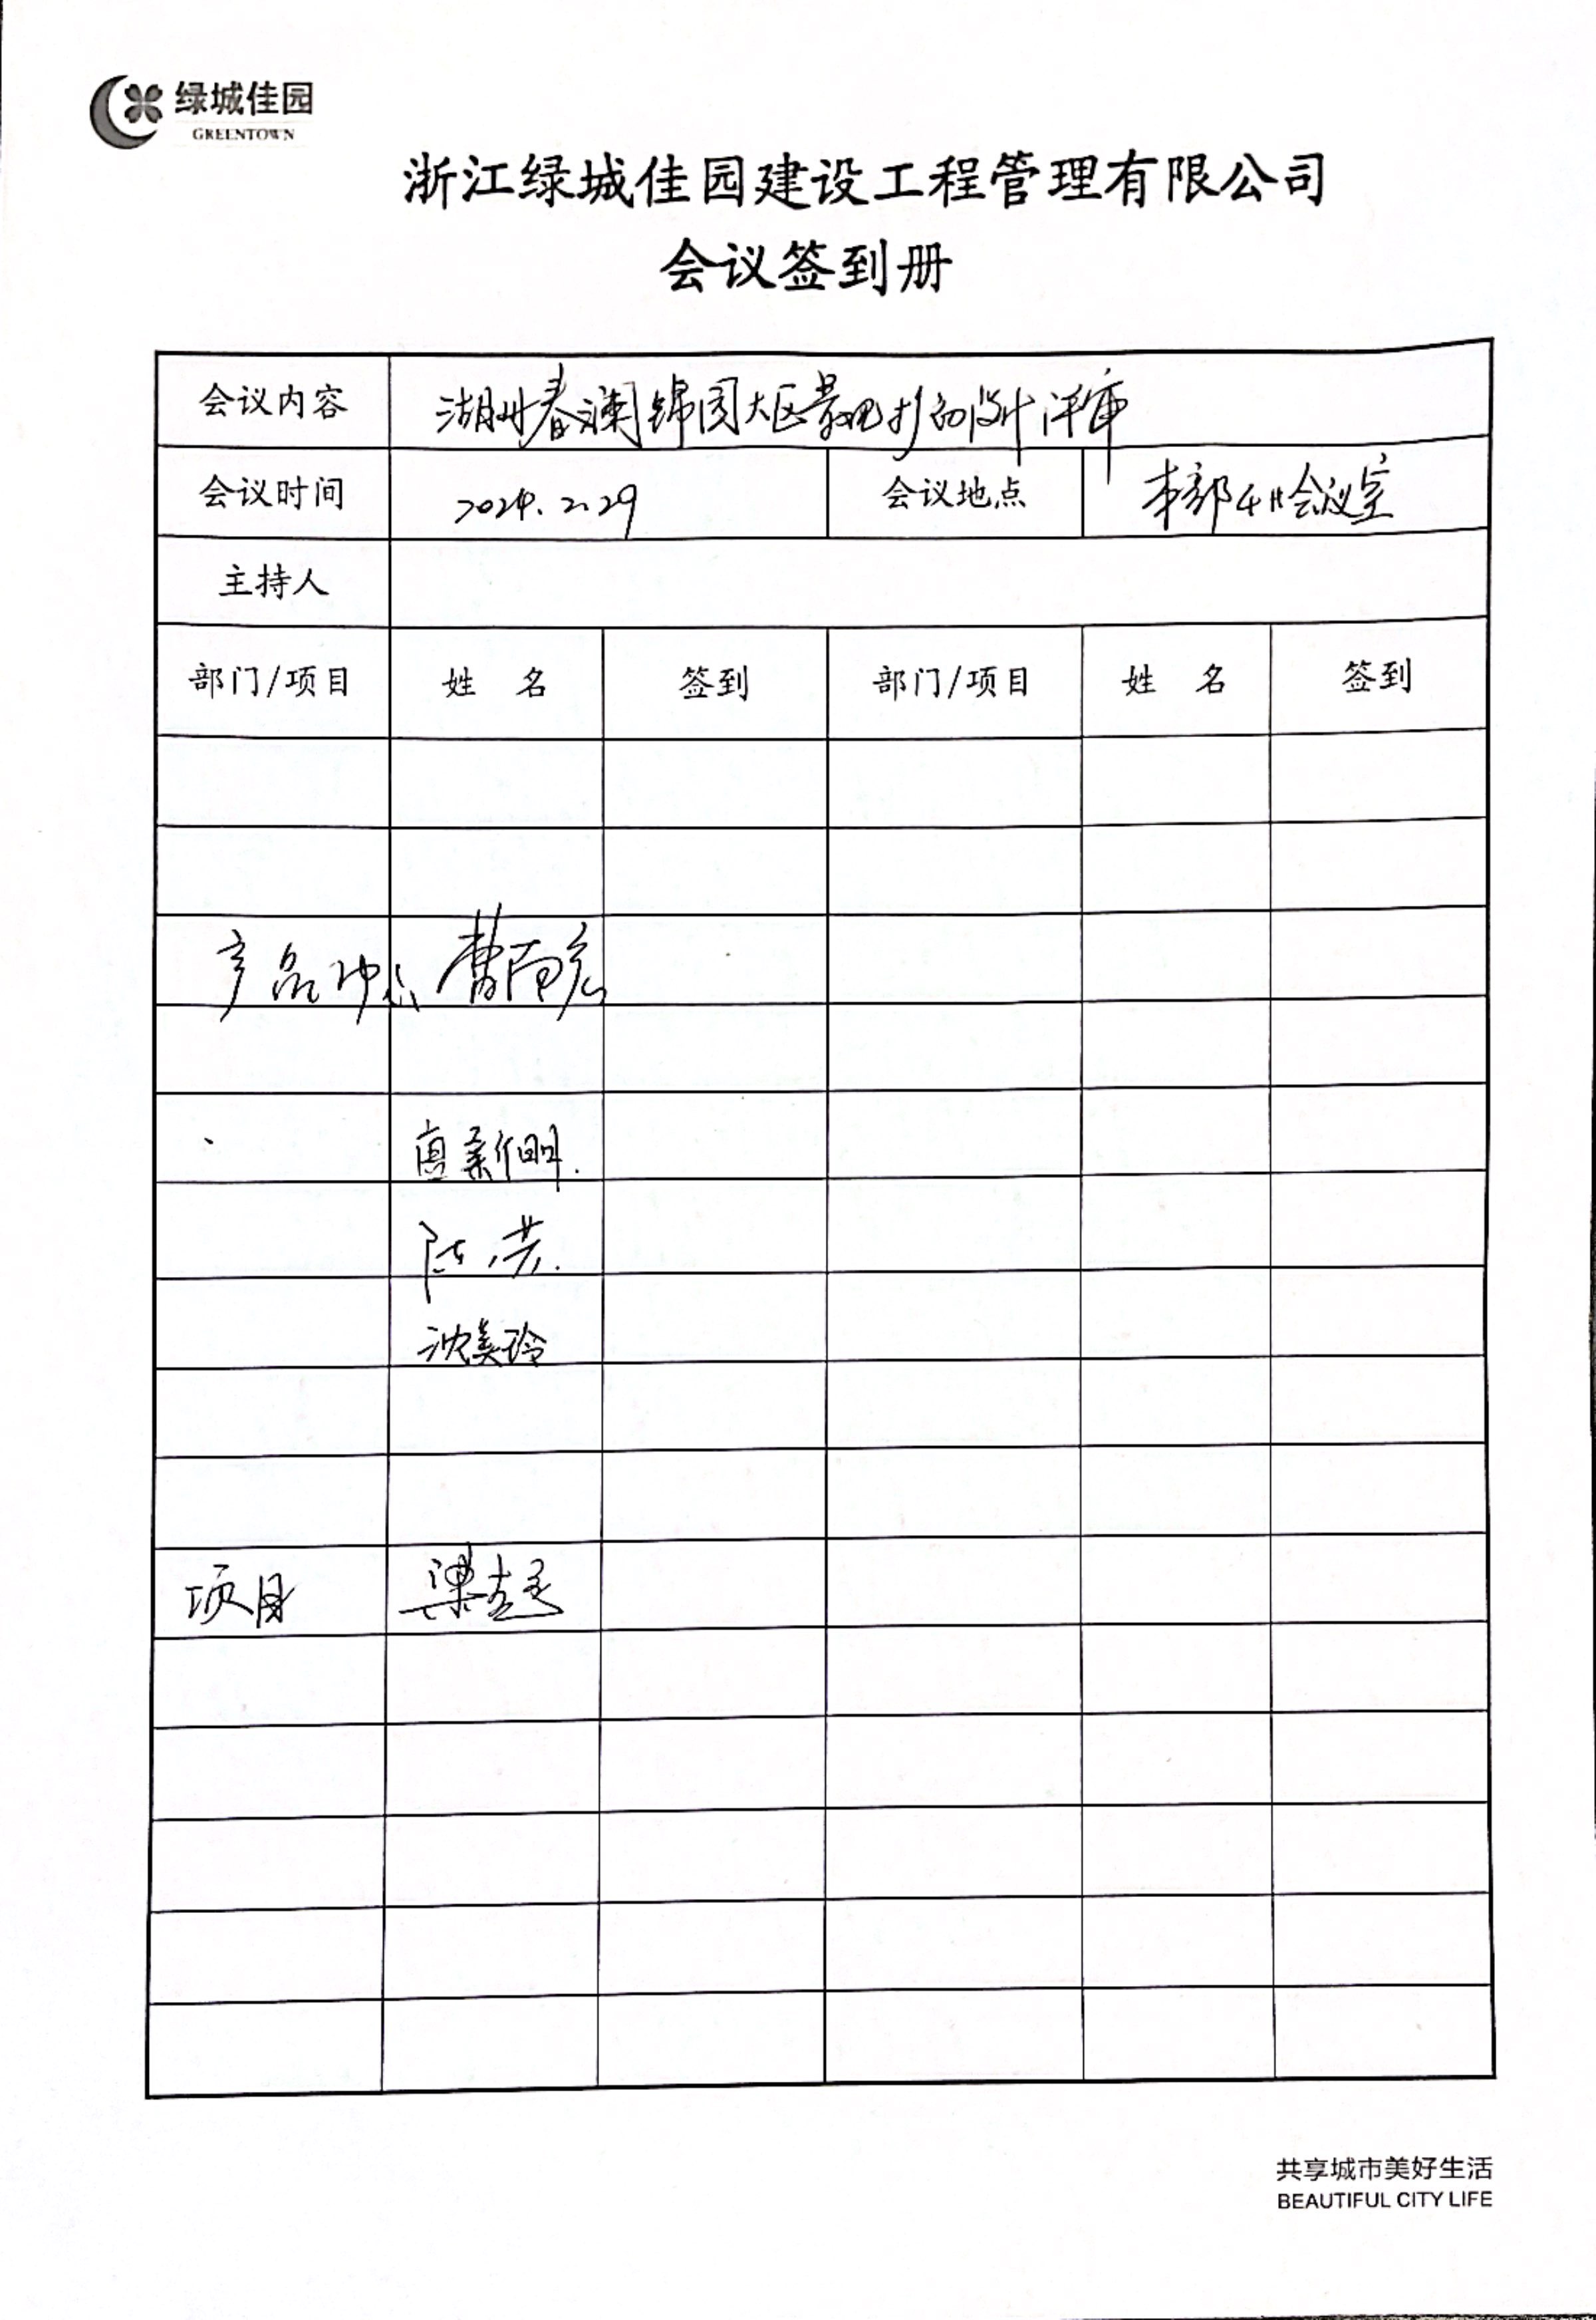 绿城佳园
GREENTOWN
浙江绿城佳园建设工程管理有限公司
会议签到册
会议内容 湖州春澜锦园大区景观扩初设计评审
会议时间 2024.2.29 会议地点 本部4H会议室
主持人
部门/项目 姓 名 签到 部门/项目 姓 名 签到
产品中心 曹雨宏
明
陆
沈美玲
项目 梁
共享城市美好生活
BEAUTIFUL CITY LIFE